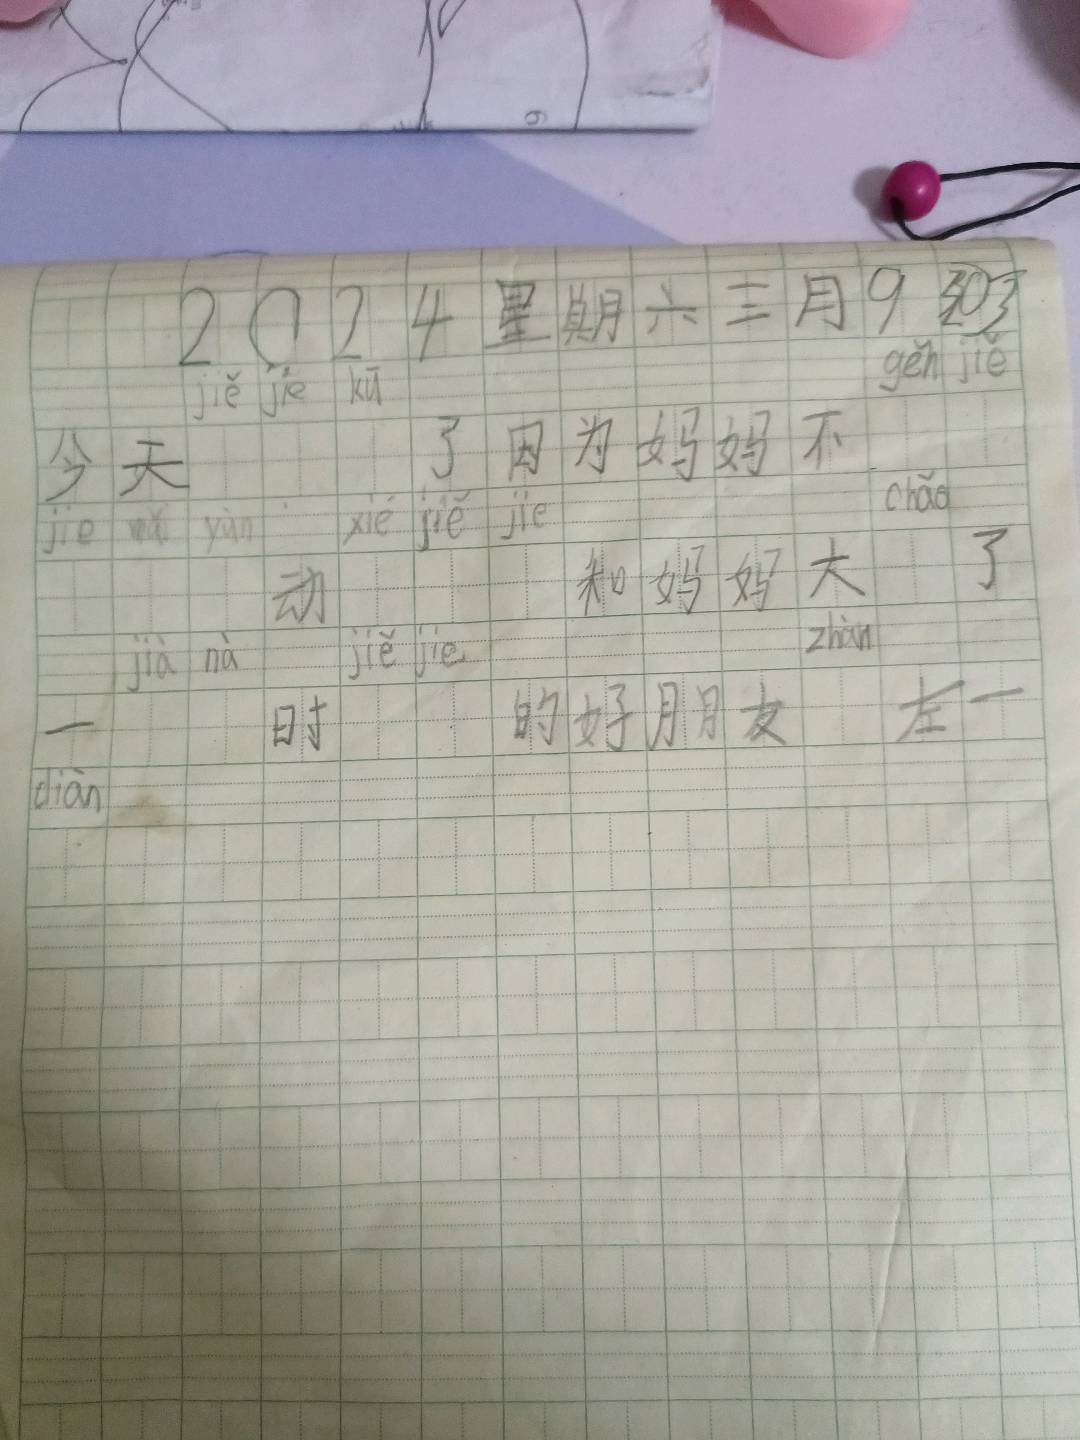 2024星期六三月9
jiě jie kū gěn jiě
今天 了因为妈妈不
jie yùn xié jiě jie chǎo
动 和妈妈大 了
jià nà jiě jie zhàn
一 时 的好朋友 左一
diàn